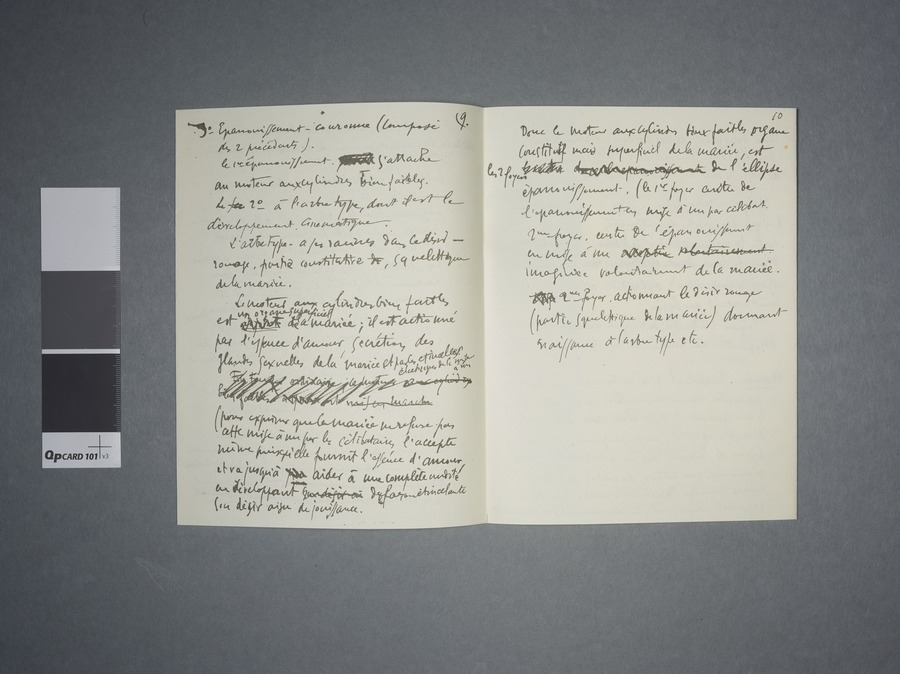 3º Epanouissement-couronne (Composé
des 2 précédents).
le 1er épanouissement. s'attache
au moteur aux cylindres bien faibles.
Le 2º à l'arbre type, dont il est le
développement cinématique.
L'arbre type - a ses racines dans le désir-
rouage, partie constitutive, squelettique
de la mariée.
Le moteur aux cylindres bien faibles
un organe superficiel
est de la mariée ; il est actionné
par l'essence d'amour, sécrétion des
glandes sexuelles de la mariée et par les étincelles
électriques de la mise à nu
(pour exprimer que la mariée ne refuse pas
cette mise à nu par les célibataires, l'accepte
même puisqu'elle fournit l'essence d'amour
et va jusqu'à aider à une complète nudité
en développant de façon étincelante
son désir aigu de jouissance.
9.
10
Donc le moteur aux cylindres bien faibles organe
constitutif mais superficiel de la mariée, est
les 2 foyers de l'ellipse
épanouissement. (le 1er foyer centre de
l'épanouissement en mise à nu par célibat.
2me foyer, centre de l'épanouissement
en mise à nu volontairement
imaginée volontairement de la mariée.
2me foyer, actionnant le désir rouage
(partie squelettique de la mariée) donnant
naissance à l'arbre type etc.
QPCARD 101 v3